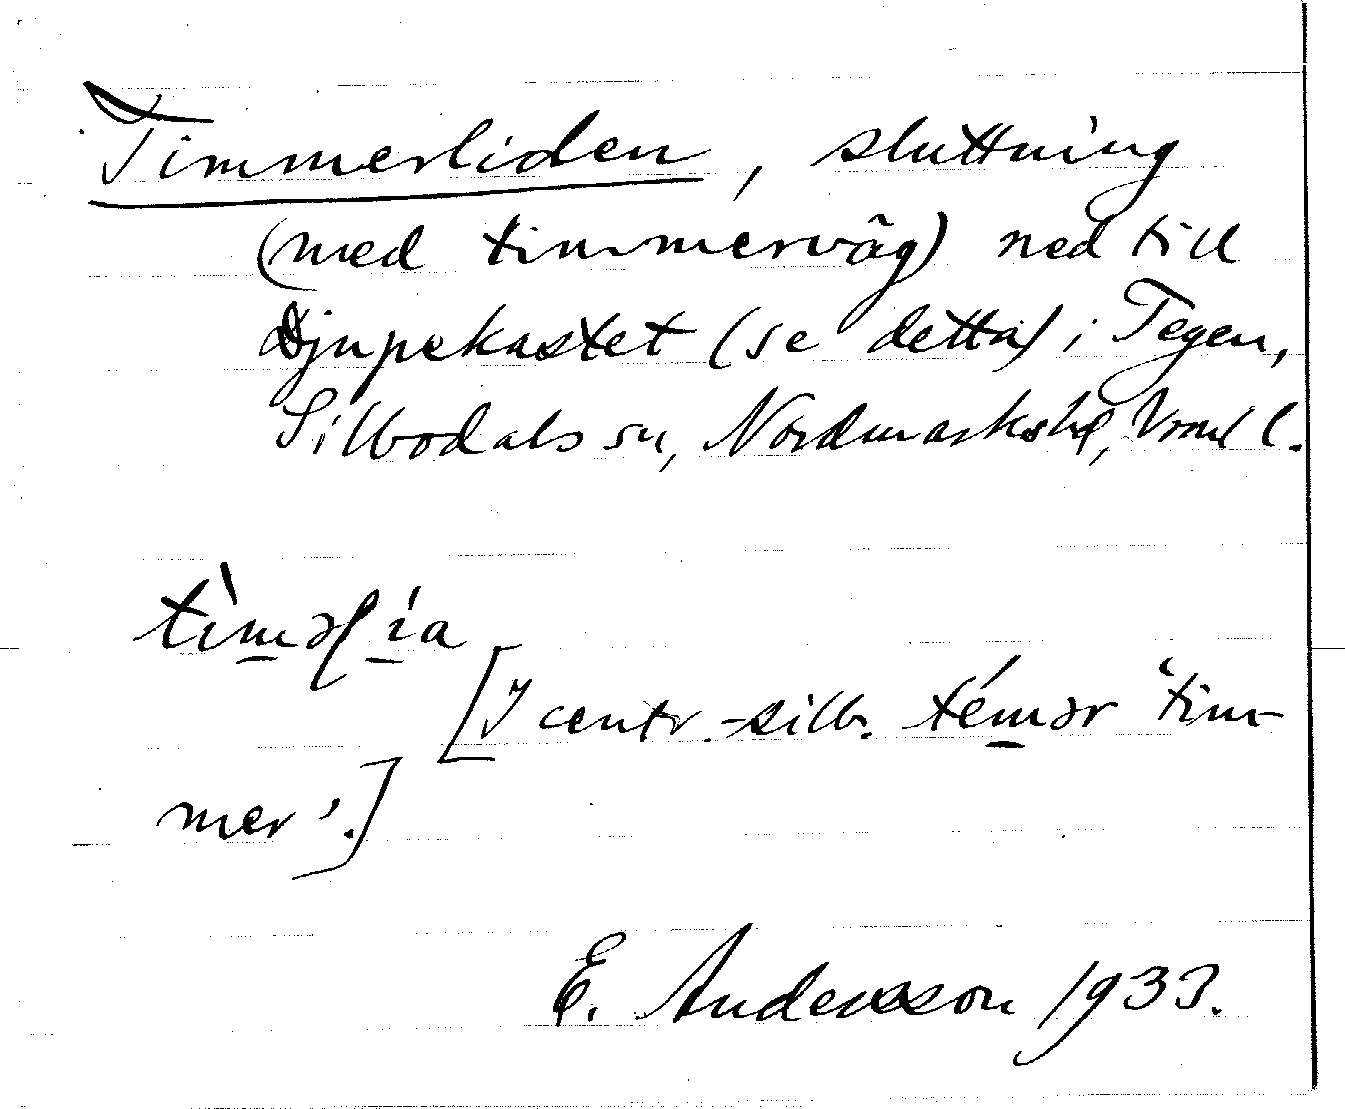 Timmerliden, sluttning
(med timmerväg) ned till
Djupekastet (se detta) i Tegen,
Silbodals sn, Nordmarks hd, Vrml l.
tìməɭía
[I centr.-silb. témər 'tim-
mer'.]
E. Andersson 1933.